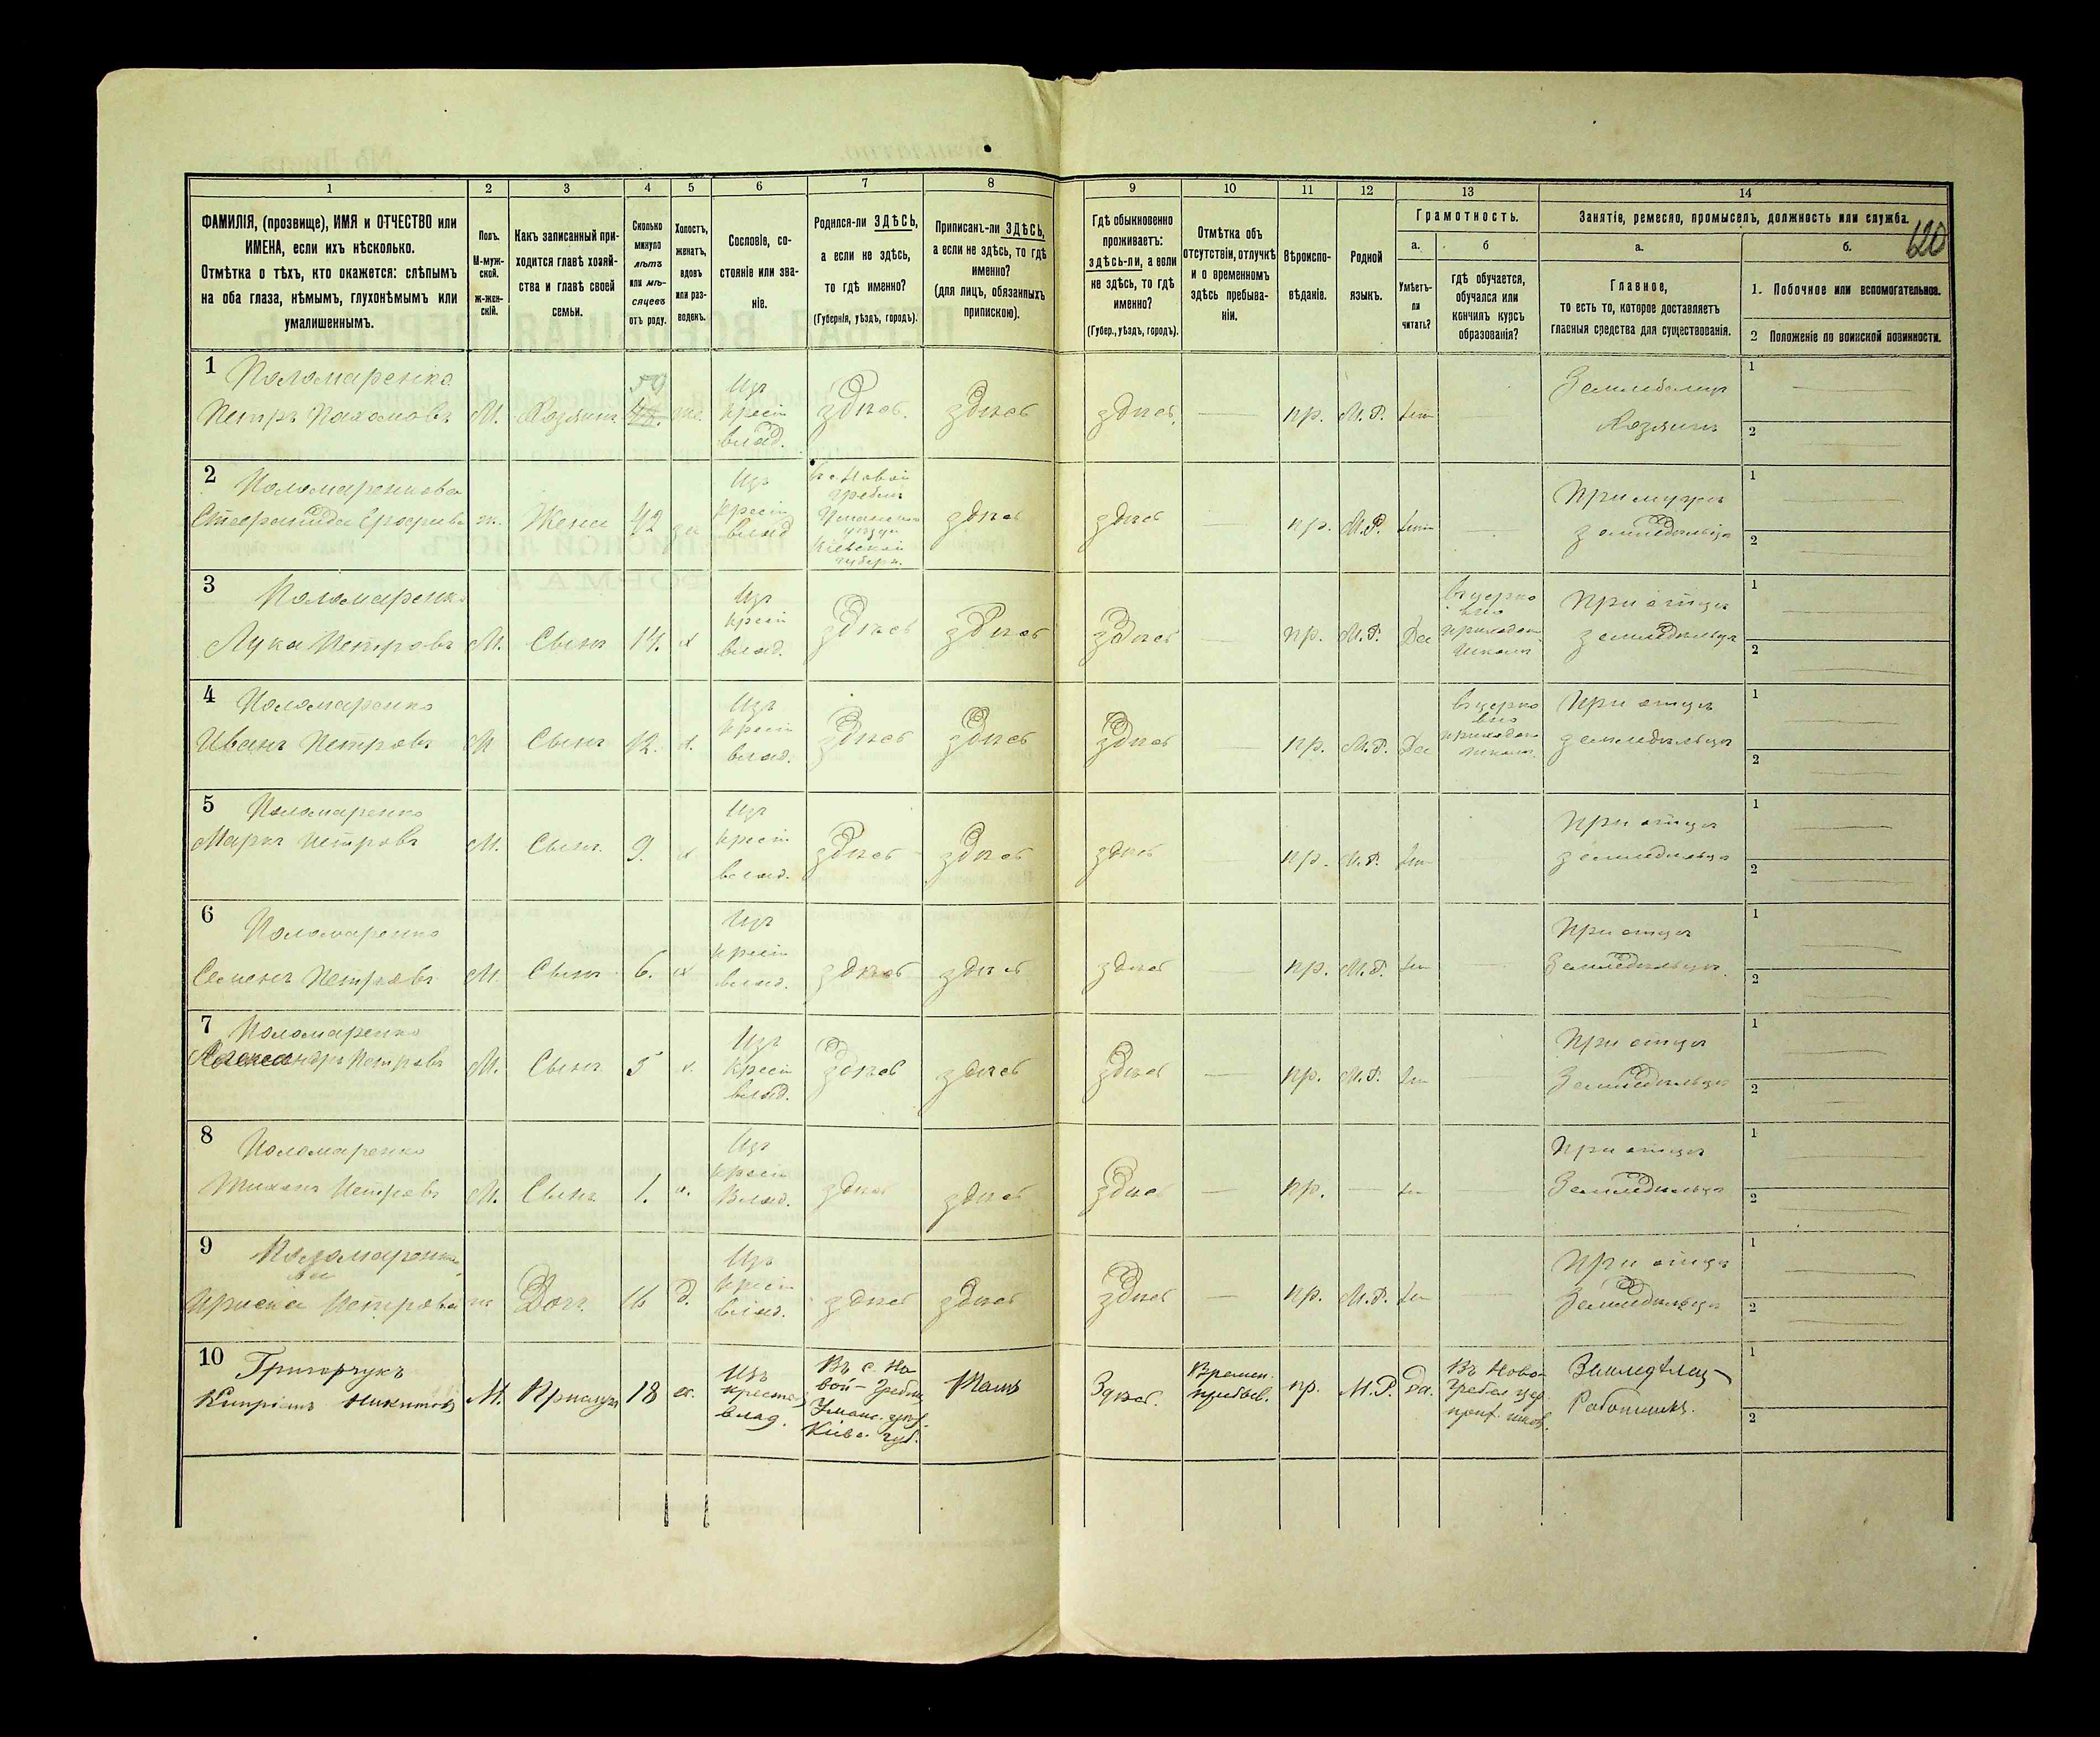 1 2 3 4 5 6 7 8 9 10 11 12 13 14
ФАМИЛІЯ, (прозвище), ИМЯ и ОТЧЕСТВО или
ИМЕНА, если ихъ нѣсколько.
Отмѣтка о тѣхъ, кто окажется: слѣпымъ
на оба глаза, нѣмымъ, глухонѣмымъ или
умалишеннымъ.
Полъ.
М-муж-
ской.
ж-жен-
скій.
Какъ записанный при-
ходится главѣ хозяй-
ства и главѣ своей
семьи.
Сколько
минуло
лѣтъ
или мѣ-
сяцевъ
отъ роду.
Холостъ,
женатъ,
вдовъ
или раз-
веденъ.
Сословіе, со-
стояніе или зва-
ніе.
Родился-ли ЗДѢСЬ,
а если не здѣсь,
то гдѣ именно?
(Губернія, уѣздъ, городъ).
Приписанъ-ли ЗДѢСЬ,
а если не здѣсь, то гдѣ
именно?
(для лицъ, обязанныхъ
припискою).
Гдѣ обыкновенно
проживаетъ:
здѣсь-ли, а если
не здѣсь, то гдѣ
именно?
(Губер., уѣздъ, городъ).
Отмѣтка объ
отсутствіи, отлучкѣ
и о временномъ
здѣсь пребыва-
ніи.
Вѣроиспо-
вѣданіе.
Родной
языкъ.
Грамотность.
а.
Умѣетъ-
ли
читать?
б
гдѣ обучается,
обучался или
кончилъ курсъ
образованія?
Занятіе, ремесло, промыселъ, должность или служба.
620
а.
Главное,
то есть то, которое доставляетъ
главныя средства для существованія.
б.
1. Побочное или вспомогательное.
2 Положеніе по воинской повинности.
1 Поломаренко
Петръ Пахомовъ М. Хозяинъ 50 48. жен. Изъ крест. влад. здѣсь здѣсь здѣсь пр. М.Р. нет Земледелецъ Хозяинъ 1 2
2 Поломаренкова
ж. Жена 42 Изъ крест. влад Въ Новой Гребли Уманскаго уѣзда Кіевской губерн. здѣсь здѣсь пр. М.Р. нет При мужѣ земледѣльцѣ 1 2
3 Поломаренко
Лука Петровъ М. Сынъ 14. х Изъ крест. влад. здѣсь здѣсь здѣсь пр. М.Р. Да Въ церковно приходск. школѣ При отцѣ земледѣльцѣ 1 2
4 Поломаренко
Иванъ Петровъ М Сынъ 12. х. Изъ крест. влад. здѣсь здѣсь здѣсь пр. М.Р. Да Въ церковно приходск. школѣ При отцѣ земледѣльцѣ 1 2
5 Поломаренко
Маркъ Петровъ М. Сынъ 9. х Изъ крест. влад. здѣсь здѣсь здѣсь пр. М.Р. нет При отцѣ земледѣльцѣ 1 2
6 Поломаренко
Семенъ Петровъ М. Сынъ 6. х Изъ крест. влад. здѣсь здѣсь здѣсь пр. М.Р. нет При отцѣ Земледѣльцѣ 1 2
7 Поломаренко
Александръ Петровъ М. Сынъ 5 х. Изъ крест. влад. здѣсь здѣсь здѣсь пр. М.Р. нет При отцѣ Земледѣльцѣ 1 2
8 Поломаренко
Петровъ М. Сынъ 1. х. Изъ крест. Влад. здѣсь здѣсь здѣсь пр. нет При отцѣ Земледѣльцѣ 1 2
9 Поломаренкова
Петрова ж Доч. 16 д. Изъ крест. влад. здѣсь здѣсь здѣсь пр. М.Р. нет При отцѣ Земледѣльцѣ 1 2
10 Григорчукъ
Кипріанъ Никитовъ М. 18 х. Изъ крестьян. влад. Въ с. Новой-Гребли Уманс. уѣз. Кіевс. губ. Тамъ Здѣсь. Времен. пребыв. пр. М.Р. Да. Въ Новой Гребли цер. прих. школ. Земледѣлец-Работникъ. 1 2